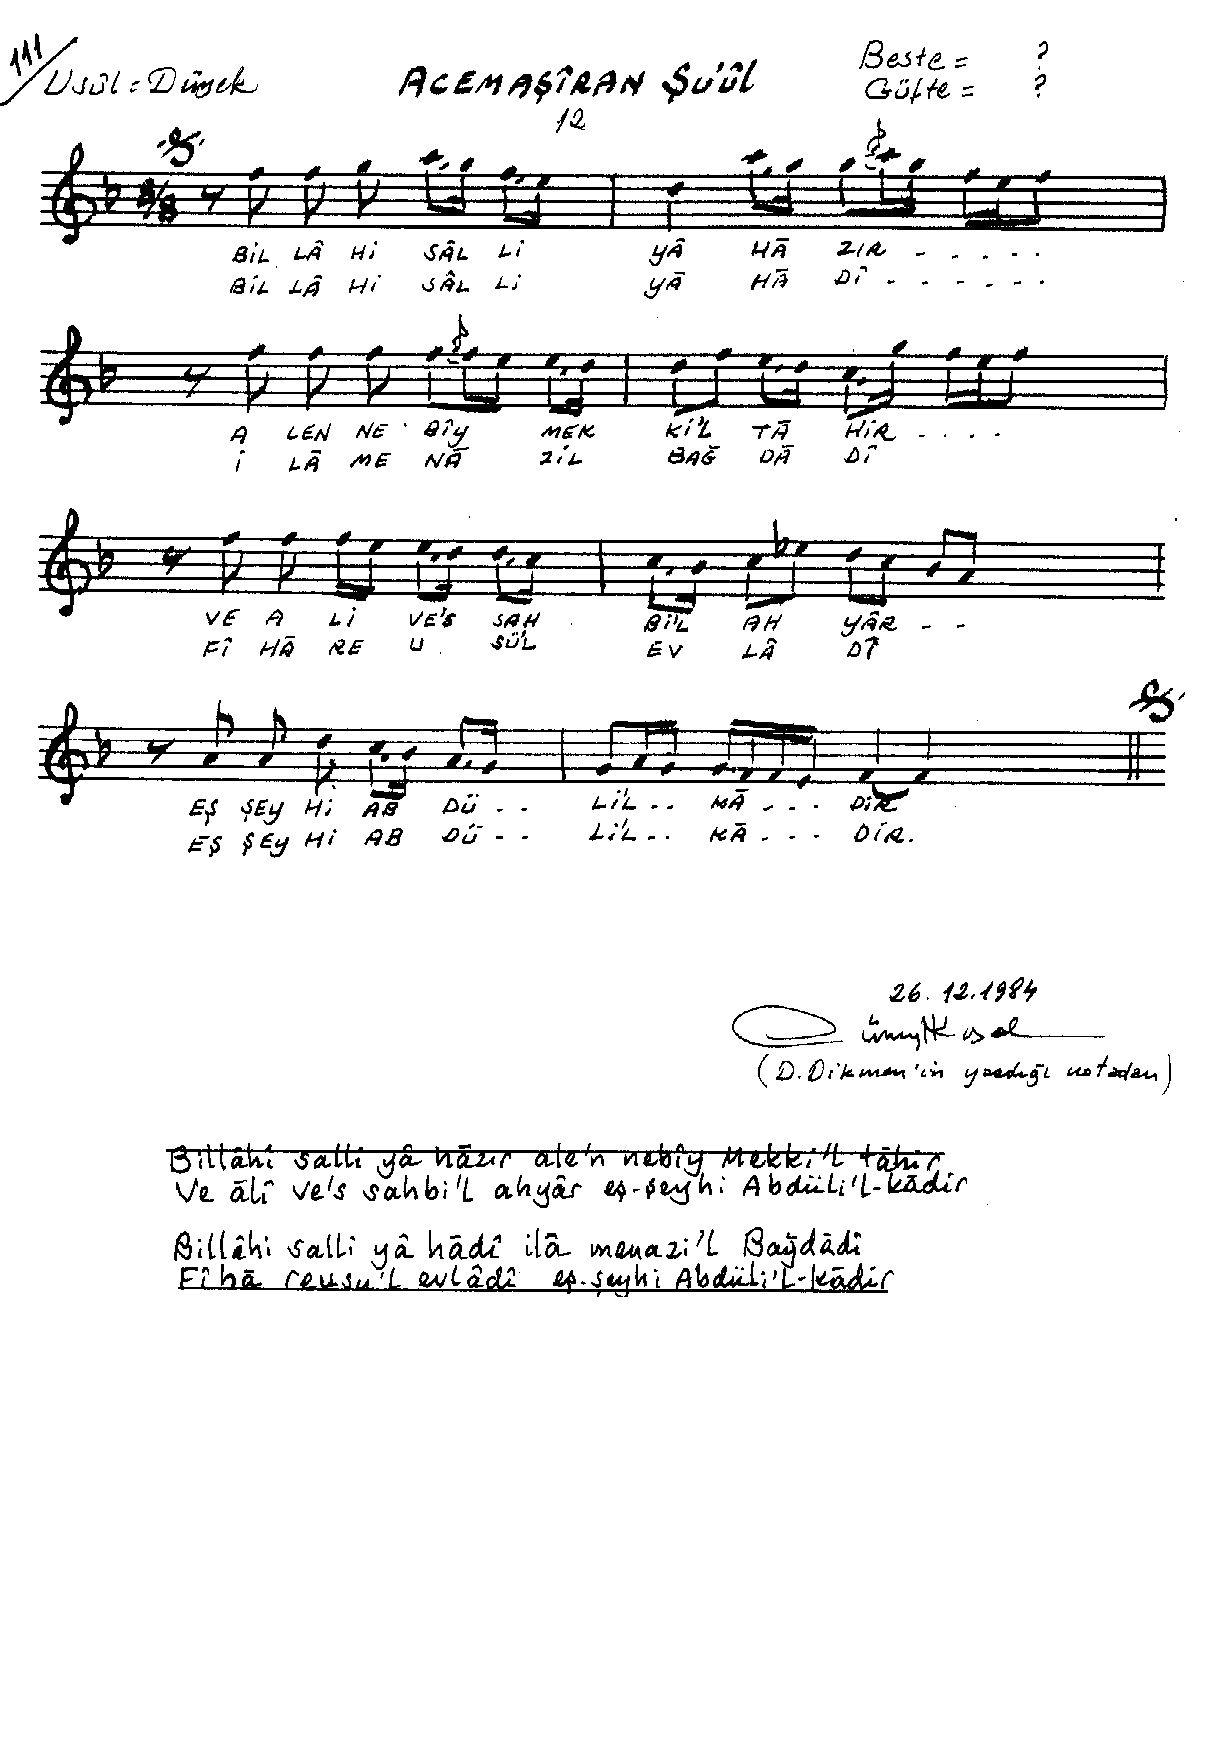 111
Usûl = Düyek
ACEMAŞÎRAN ŞU'ÛL
Beste = ?
Güfte = ?
12
8/8
BİL LÂ Hİ SÂL Lİ YÂ HĀ ZIR - - - - -
BİL LÂ Hİ SÂL Lİ YĀ HĀ DÎ - - - - - -
A LEN NE BÎY MEK Kİ'L TĀ HİR - - - -
İ LĀ ME NĀ ZİL BAĞ DĀ DÎ
VE A Lİ VE'S SAH Bİ'L AH YÂR - -
FÎ HĀ RE U SÜ'L EV LÂ DÎ
EŞ ŞEY Hİ AB DÜ - - Lİ'L - - KĀ - - - DİR
EŞ ŞEY Hİ AB DÜ - - Lİ'L - - KĀ - - - DİR.
26.12.1984
(D. Dikmen'in yazdığı notadan)
Billâhi salli yâ hāzır ale'n nebîy Mekki'l tāhir
Ve ālî ve's sahbi'l ahyâr eş-şeyhi Abdüli'l-kādir
Billâhi salli yâ hādî ilā menazi'l Bağdādî
Fîhā reusu'l evlâdî eş-şeyhi Abdüli'l-kādir